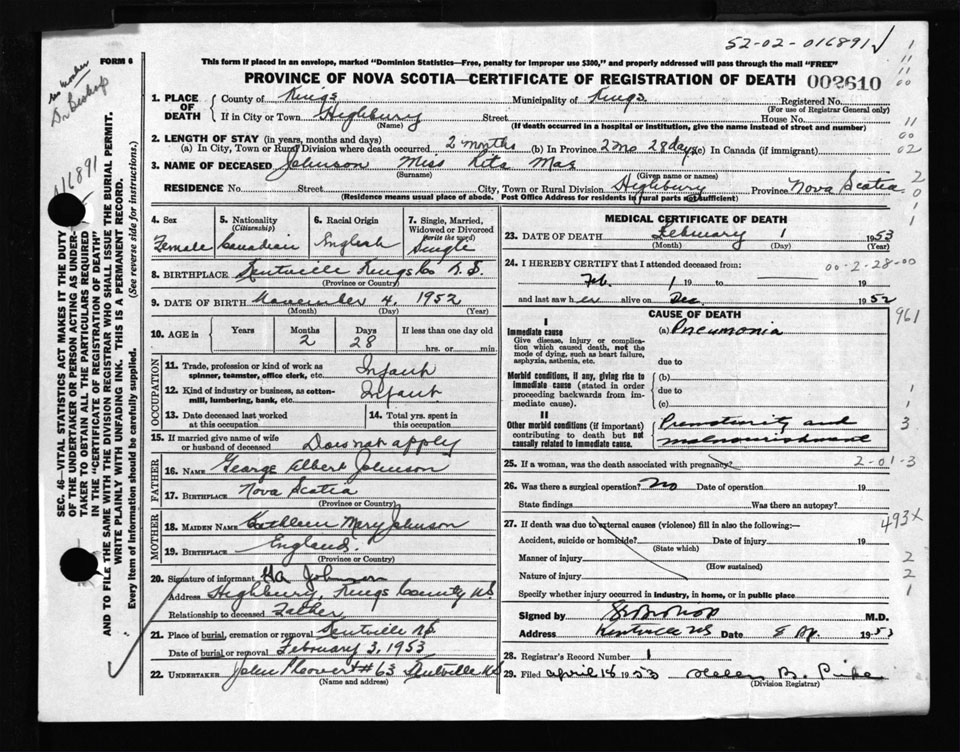 52-02-016891 ✓
FORM 6
This form if placed in an envelope, marked "Dominion Statistics—Free, penalty for improper use $300," and properly addressed will pass through the mail "FREE"
PROVINCE OF NOVA SCOTIA—CERTIFICATE OF REGISTRATION OF DEATH 002610
Dr Bishop
016891
SEC. 46—VITAL STATISTICS ACT MAKES IT THE DUTY
OF THE UNDERTAKER OR PERSON ACTING AS UNDER-
TAKER TO OBTAIN ALL THE PARTICULARS REQUIRED
IN THE "CERTIFICATE OF REGISTRATION OF DEATH"
AND TO FILE THE SAME WITH THE DIVISION REGISTRAR WHO SHALL ISSUE THE BURIAL PERMIT.
WRITE PLAINLY WITH UNFADING INK. THIS IS A PERMANENT RECORD.
Every item of information should be carefully supplied. (See reverse side for instructions.)
1. PLACE OF DEATH County of Kings Municipality of Kings Registered No.
(For use of Registrar General only)
If in City or Town Highbury Street House No.
(Name) (If death occurred in a hospital or institution, give the name instead of street and number)
2. LENGTH OF STAY (in years, months and days)
(a) In City, Town or Rural Division where death occurred 2 months (b) In Province 2 mo 28 days (c) In Canada (if immigrant)
3. NAME OF DECEASED Johnson Miss Rita Mae
(Surname) (Given name or names)
RESIDENCE No. Street City, Town or Rural Division Highbury Province Nova Scotia
(Residence means usual place of abode. Post Office Address for residents in rural parts not sufficient)
4. Sex 5. Nationality (Citizenship) 6. Racial Origin 7. Single, Married, Widowed or Divorced (write the word)
Female Canadian English Single
8. BIRTHPLACE Kentville Kings Co N.S.
(Province or Country)
9. DATE OF BIRTH November 4, 1952
(Month) (Day) (Year)
10. AGE in Years Months Days If less than one day old
2 28 hrs. or min.
OCCUPATION
11. Trade, profession or kind of work as spinner, teamster, office clerk, etc. Infant
12. Kind of industry or business, as cotton-mill, lumbering, bank, etc. Infant
13. Date deceased last worked at this occupation 14. Total yrs. spent in this occupation
15. If married give name of wife or husband of deceased Does not apply
FATHER
16. NAME George Albert Johnson
17. BIRTHPLACE Nova Scotia
(Province or Country)
MOTHER
18. MAIDEN NAME Kathleen Mary Johnson
19. BIRTHPLACE England.
(Province or Country)
20. Signature of informant GA Johnson
Address Highbury, Kings County NS
Relationship to deceased Father
21. Place of burial, cremation or removal Kentville NS
Date of burial or removal February 3, 1953
22. UNDERTAKER #63 Kentville NS
(Name and address)
MEDICAL CERTIFICATE OF DEATH
23. DATE OF DEATH February 1 1953
(Month) (Day) (Year)
24. I HEREBY CERTIFY that I attended deceased from: 00-2-28-00
Feb. 1 19 to 19
and last saw her alive on Dec 1952
CAUSE OF DEATH 961
I
Immediate cause (a) Pneumonia
Give disease, injury or complication which caused death, not the mode of dying, such as heart failure, asphyxia, asthenia, etc. due to
Morbid conditions, if any, giving rise to immediate cause (stated in order proceeding backwards from immediate cause). (b) due to (c)
II
Other morbid conditions (if important) contributing to death but not causally related to immediate cause. Prematurity and malnourishment
25. If a woman, was the death associated with pregnancy? 2-01-3
26. Was there a surgical operation? No Date of operation 19
State findings Was there an autopsy?
27. If death was due to external causes (violence) fill in also the following:— 493x
Accident, suicide or homicide? Date of injury 19
(State which)
Manner of injury
(How sustained)
Nature of injury
Specify whether injury occurred in industry, in home, or in public place
Signed by M.D.
Address Kentville NS Date 8 Ap. 1953
28. Registrar's Record Number 1
29. Filed April 18 1953 Helen B. Pike
(Division Registrar)